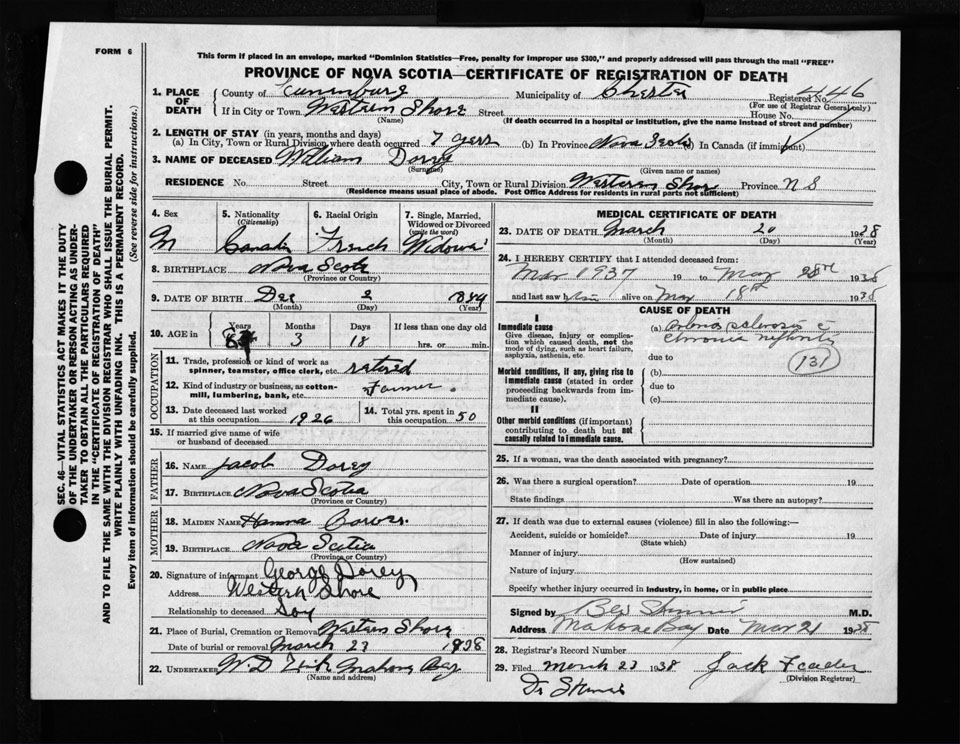 FORM 6
This form if placed in an envelope, marked "Dominion Statistics—Free, penalty for improper use $300," and properly addressed will pass through the mail "FREE"
PROVINCE OF NOVA SCOTIA—CERTIFICATE OF REGISTRATION OF DEATH
SEC. 46—VITAL STATISTICS ACT MAKES IT THE DUTY
OF THE UNDERTAKER OR PERSON ACTING AS UNDER-
TAKER TO OBTAIN ALL THE PARTICULARS REQUIRED
IN THE "CERTIFICATE OF REGISTRATION OF DEATH"
AND TO FILE THE SAME WITH THE DIVISION REGISTRAR WHO SHALL ISSUE THE BURIAL PERMIT.
WRITE PLAINLY WITH UNFADING INK. THIS IS A PERMANENT RECORD.
Every item of information should be carefully supplied. (See reverse side for instructions.)
1. PLACE OF DEATH
County of Lunenburg Municipality of Chester Registered No. 446
(For use of Registrar General only)
If in City or Town Western Shore Street House No.
(Name) (If death occurred in a hospital or institution, give the name instead of street and number)
2. LENGTH OF STAY (in years, months and days)
(a) In City, Town or Rural Division where death occurred 7 yers (b) In Province Nova Scotia In Canada (if immigrant)
3. NAME OF DECEASED William Dorey
(Surname) (Given name or names)
RESIDENCE No. Street City, Town or Rural Division Western Shore Province N S
(Residence means usual place of abode. Post Office Address for residents in rural parts not sufficient)
4. Sex M
5. Nationality (Citizenship) Canadin
6. Racial Origin French
7. Single, Married, Widowed or Divorced (write the word) Widowa
8. BIRTHPLACE Nova Scotia
(Province or Country)
9. DATE OF BIRTH Dec 2
(Month) (Day) (Year)
10. AGE in Years Months 3 Days 18 If less than one day old hrs. or min.
OCCUPATION
11. Trade, profession or kind of work as spinner, teamster, office clerk, etc. retired
12. Kind of industry or business, as cotton-mill, lumbering, bank, etc. Farmer.
13. Date deceased last worked at this occupation 1926
14. Total yrs. spent in this occupation 50
15. If married give name of wife or husband of deceased
FATHER
16. NAME Jacob Dorey
17. BIRTHPLACE Nova Scotia
(Province or Country)
MOTHER
18. MAIDEN NAME Hanna
19. BIRTHPLACE Nova Scotia
(Province or Country)
20. Signature of informant George Dorey
Address Western Shore
Relationship to deceased Son
21. Place of Burial, Cremation or Removal Western Shore
Date of burial or removal March 23 1938
22. UNDERTAKER W. D. Mahone Bay
(Name and address)
MEDICAL CERTIFICATE OF DEATH
23. DATE OF DEATH March 20 1938
(Month) (Day) (Year)
24. I HEREBY CERTIFY that I attended deceased from:
Mar 1937 19 to Mar 1938
and last saw him alive on Mar 18th 1938
CAUSE OF DEATH
I
Immediate cause
Give disease, injury or complication which caused death, not the mode of dying, such as heart failure, asphyxia, asthenia, etc.
(a) sclerosis c
chronic nephritis
due to
131
Morbid conditions, if any, giving rise to immediate cause (stated in order proceeding backwards from immediate cause).
(b)
due to
(c)
II
Other morbid conditions (if important) contributing to death but not causally related to immediate cause.
25. If a woman, was the death associated with pregnancy?
26. Was there a surgical operation? Date of operation 19
State findings Was there an autopsy?
27. If death was due to external causes (violence) fill in also the following:—
Accident, suicide or homicide? Date of injury 19
(State which)
Manner of injury
(How sustained)
Nature of injury
Specify whether injury occurred in industry, in home, or in public place
Signed by M.D.
Address Mahone Bay Date Mar 21 1938
28. Registrar's Record Number
29. Filed March 23 1938 Jack Feader
(Division Registrar)